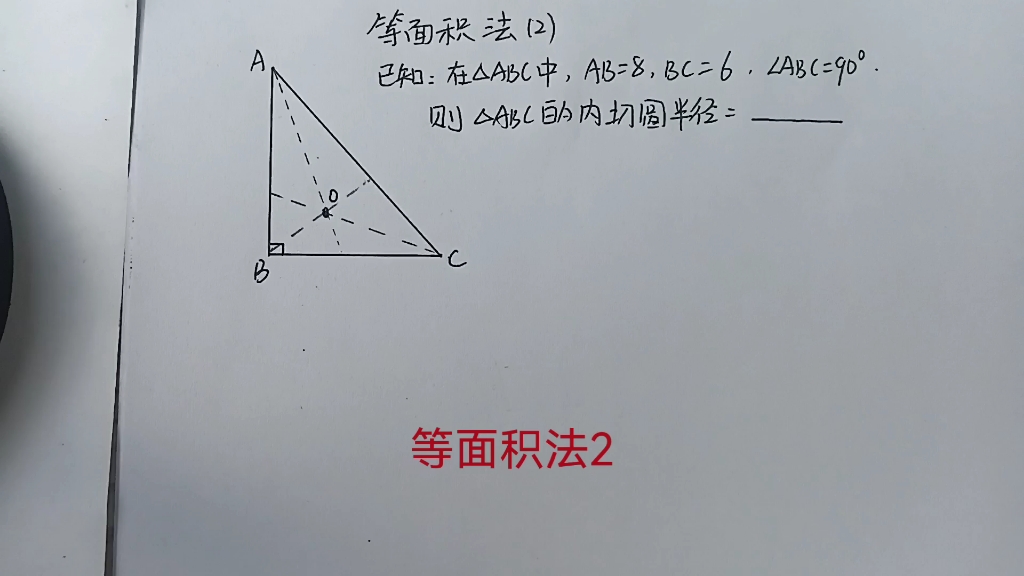 等面积法(2)
已知:在△ABC中,AB=8,BC=6,∠ABC=90°.
则△ABC的内切圆半径=
A
O
B
C
等面积法2